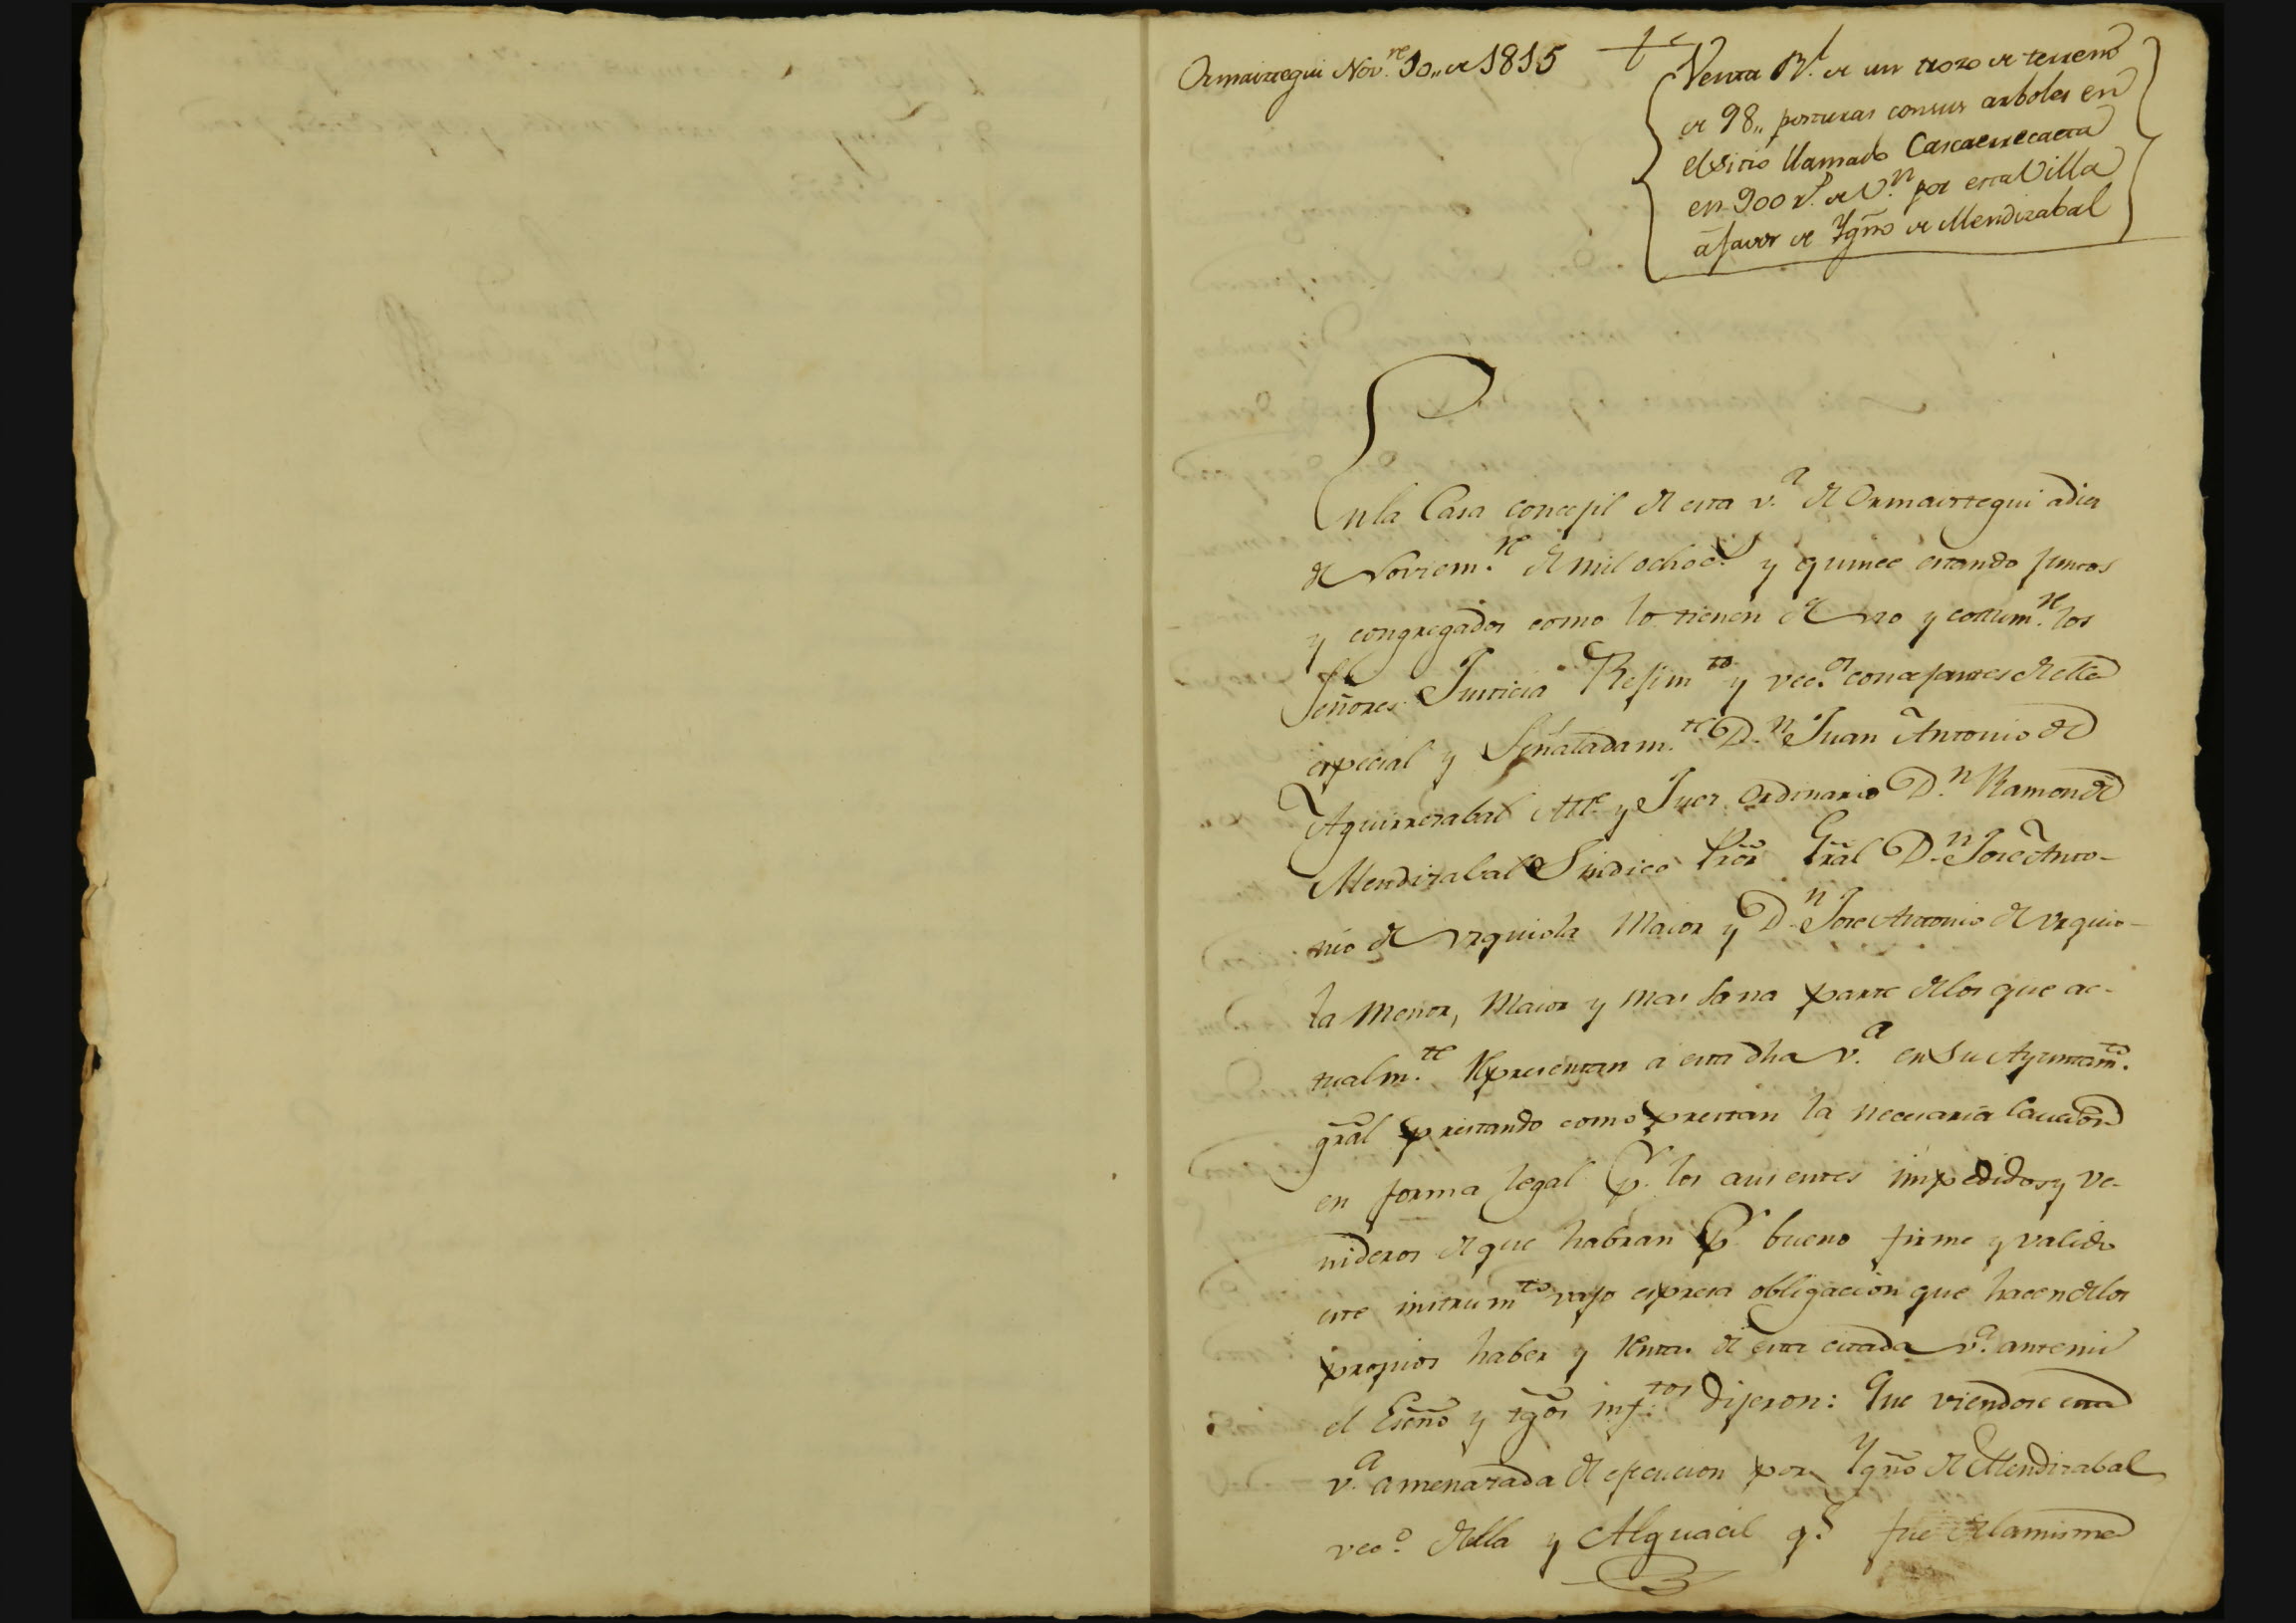 Ormaiztegui Nov.re 10,, de 1815
Venta Rl. de un trozo de terreno
de 98,, posturas consus arboles en
el sitio llamado Cascaerrecaeta
en 900 rs. de V.n por esta Villa
â favor de Ygnº de Mendizabal
En la Casa concejil de esta v.a de Ormaiztegui adiez
de Noviem.re de mil ochocs. y quince estando juntos
y congregados como lo tienen de uso y costum.re los
Señores Justicia Rejimto y vec.os concejantes de ella
especial y Señaladam.te D.n Juan Antonio de
Aguirrezabal Alle. y Juez Ordinario D.n Ramon de
Mendizabal Sindico Prõr Grãl D.n Jose Anto-
nio de Urquiola Maior y D.n Jose Antonio de Urquio-
la Menor, Maior y mas sana parte de los que ac-
tualm.te Representan a esta dha v.a en su Ayuntam.to
grãl prestando como prestan la necesaria caucion
en forma legal pr. los ausentes impedidos y ve-
nideros de que habran pr. bueno firme y valido
este instrumto vajo espresa obligacion que hacen de los
propios haber y Rentas de esta citada v.a ante mi
el Esnõ y tgõs inf.tos dijeron: Que viendose esta
v.a amenazada de ejecucion por Ygnõ de Mendizabal
vec.o de ella y Alguacil q.e fue de la misma